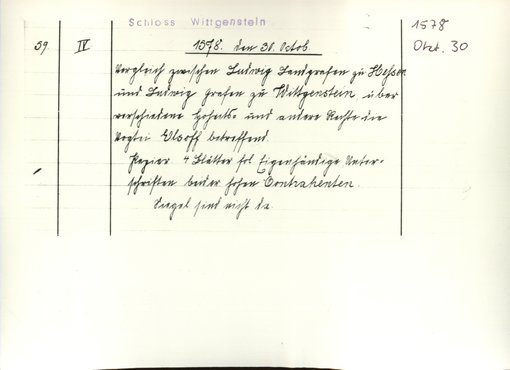 Schloss Wittgenstein
1578
Okt. 30
39 IV 1578. den 30. Octob.
Vergleich zwischen Ludwig Landgrafen zu Hessen
und Ludwig Grafen zu Wittgenstein, über
verschiedene Hoheits- und andere Rechte die
Vogtei Elsoff betreffend.
Papier 4 Blätter fol. Eigenhändige Unter-
schriften beider hohen Contrahenten.
Siegel sind nicht da